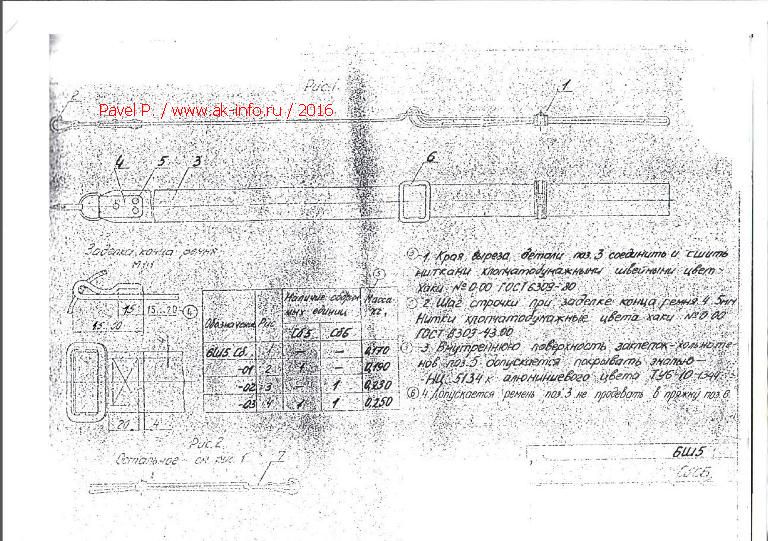 Рис.1.
2
1
Pavel P. / www.ak-info.ru / 2016
4 5 3
6
Заделка конца ремня
М 1:1
15 15...20 4
15 30
20 4
Обозначение Рис Наличие сбороч- Масса
ных единиц кг,
Сб5 Сб6
6Ш5 Сб. 1 — — 0,170
-01 2 1 — 0,190
-02 3 — 1 0,230
-03 4 1 1 0,250
1. Края выреза детали поз.3 соединить и сшить
нитками хлопчатобумажными швейными цвет-
хаки № 0.00 ГОСТ 6309-80
2. Шаг строчки при заделке конца ремня 4..5мм
Нитки хлопчатобумажные цвета хаки № 0.00
ГОСТ 6309-
3. Внутреннюю поверхность заклепок-хольните-
нов поз.5 допускается покрывать эмалью
НЦ 5134к алюминиевого цвета ТУ6-10-
6 4. Допускается ремень поз.3 не продевать в пряжку поз.6.
Рис.2.
Остальное см. рис. 1
7
6Ш5